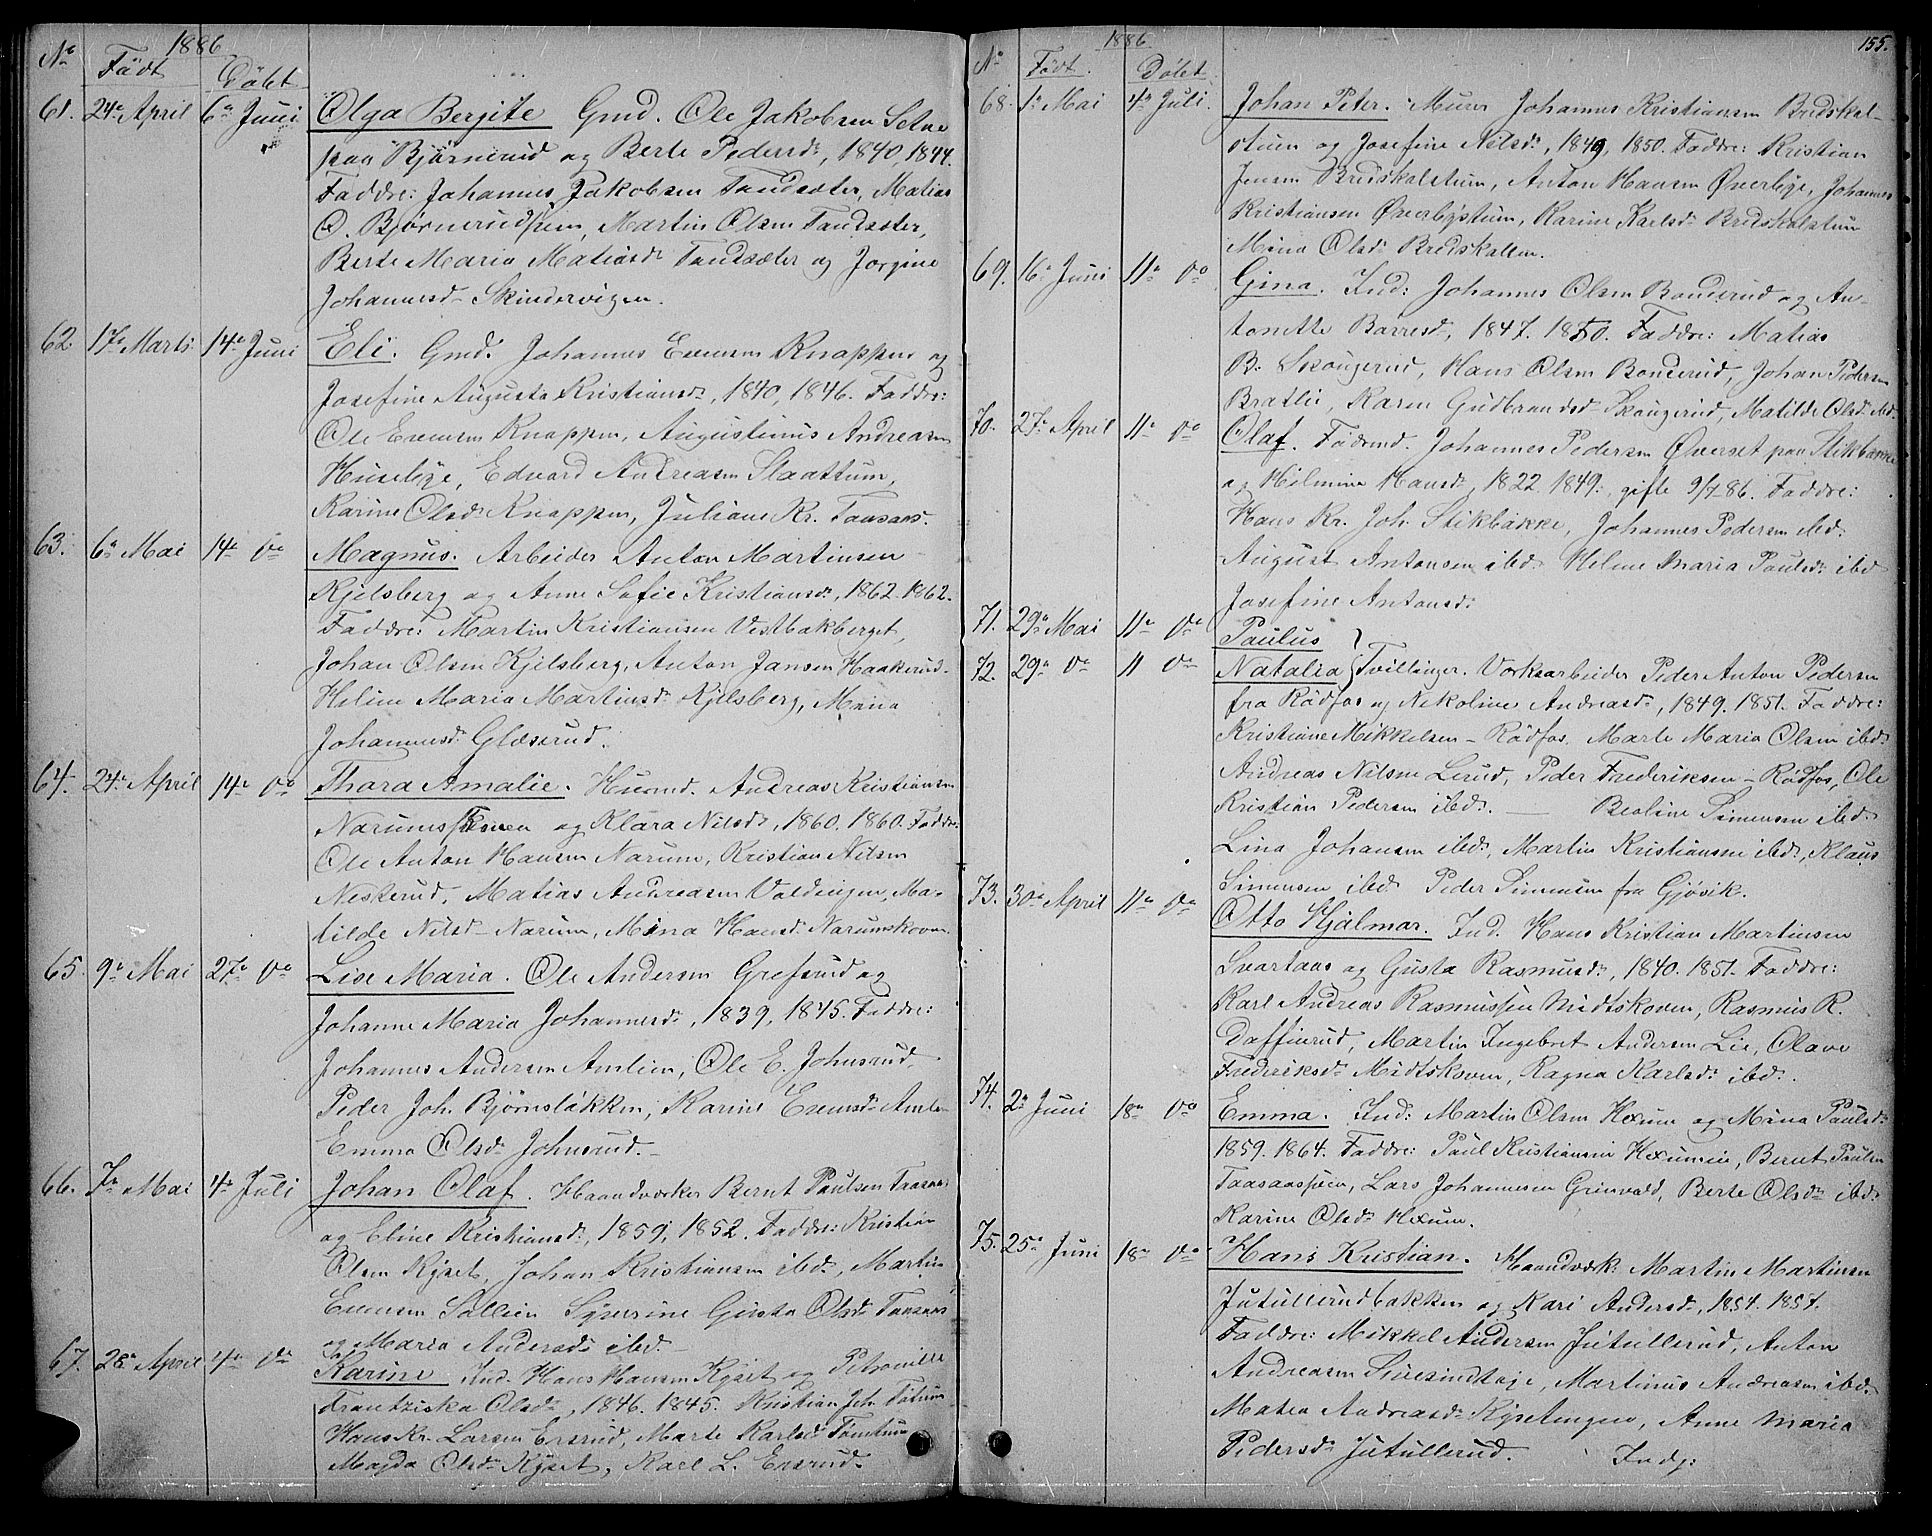 1886
No Födt Döbt
61. 24de April 6te Juni Olga Bergite Gmd. Ole Jakobsen Setne
paa Bjørnerud og Berte Pedersdr, 1840, 1844.
Faddre: Johannes Jakobsen Tandsæter, Matias
O. Bjørnerudeien, Martin Olsen Tandsæter,
Berte Maria Matiasdr Tandsæter og Jorgine
Johannesdr Skindervigen.
62. 17de Marts 14de Juni Eli. Gmd. Johannes Evensen Knappen og
Josefine Augusta Kristiansdr, 1840, 1846. Faddre:
Ole Evensen Knappen, Augustinus Andreasen
Huseby, Edvard Andreasen Slaattum,
Karine Olsdr Knappen, Juliane Kr. Taasaas.
63. 6te Mai 14de do Magnus. Arbeider Anton Martinsen
Kjelsberg og Anne Sofie Kristiansdr, 1862. 1862.
Faddre: Martin Kristiansen Vestbakberget,
Johan Olsen Kjelsberg, Anton Jansen Haakerud
Heline Maria Martinsdr Kjelsberg, Mina
Johannesdr Glæserud.
64. 24de April 14de do Thara Amalie. Husmd. Andreas Kristiansen
og Klara Nilsdr, 1860. 1860. Faddre:
Ole Anton Hansen Narum, Kristian Nilsen
Neskerud, Matias Andreasen Valdingen, Ma-
tilde Nilsdr Narum, Mina Hansdr Narumskoven.
65. 9de Mai 27de do Lise Maria. Ole Andersen Grefsrud og
Johanne Maria Johannesdr, 1839, 1845. Faddre:
Johannes Andersen Amlien, Ole E. Johnsrud
Peder Joh. Bjørnsløkken, Karine Evensdr Amlien
Emma Olsdr Johnsrud.
66. 7de Mai 4de Juli Johan Olaf. Haandværker Bernt Paulsen Taasaas
og Eline Kristiansdr, 1859, 1852. Faddre: Kristian
Olsen Kyset, Johan Kristiansen ibd., Martin
Evensen Sollien Syverine Gusta Olsdr Taasaas
og Maria Andersdr ibd.
67. 28de April 4de do Karine Ind. Hans Hansen Kyset og Petronille
Frantziska Olsdr, 1846. 1845. Kristian Joh. Tømtum
Hans Kr. Larsen Ersrud, Marte Karlsdr Tømtum
Magda Olsdr Kyset, Karl L. Ersrud.
155.
1886
No Födt. Döbt
68. 1ste Mai 4de Juli. Johan Peter. Murer Johannes Kristiansen Bredskal-
stuen og Josefine Nilsdr, 1849, 1850. Faddre: Kristian
Jensen Bredskalstuen, Anton Hansen Øverbye, Johannes
Kristiansen Øverbystuen, Karine Karlsdr Bredskalstuen
Mina Olsdr Bredskallen.
69. 16de Juni 11te do Gina. Ind: Johannes Olsen Bonderud og An-
tonette Barresdr, 1847. 1850. Faddre: Matias
B. Skougerud, Hans Olsen Bonderud, Johan Pedersen
Bratlie, Karen Gudbrandsdr Skougerud, Matilde Olsdr ibd.
70. 27de April 11te do Olaf. Föderaad. Johannes Pedersen Øverset paa Stikbakke
og Hilmine Hansdr, 1822 1849. gifte 9/7 86. Faddre:
Hans Kr. Joh. Stikbakke, Johannes Pedersen ibd:
August Antonsen ibd. Helene Maria Paulsdr ibd
Josefine Antonsdr
71. 29de Mai 11te do Paulus }
72. 29de do 11 do Natalia } Tvillinger. Værksarbeider Peder Anton Pedersen
fra Rödfos og Nikoline Andreasdr, 1849. 1851. Faddre:
Kristiane Mikkelsen - Rödfos. Marte Maria Olsen ibd.
Andreas Nilsen Lerud, Peder Frederiksen - Rödfos, Ole
Kristian Pedersen ibd. — Beoline Simensen ibd.
Lina Johansen ibd., Martin Kristiansen ibd., Klaus
Simensen ibd. Peder Simensen fra Gjøvik.
73. 30te April 11te do Otto Hjalmar. Ind. Hans Kristian Martinsen
Svartaas og Gusta Rasmusdr, 1840. 1851. Faddre:
Karl Andreas Rasmussen Midtskoven, Rasmus R.
Daffinrud, Martin Ingebret Andersen Lie, Olave
Fredriksdr Midtskoven, Ragna Karlsdr ibd.
74. 2den Juni 18de do Emma. Ind: Martin Olsen Hexum og Mina Paulsdr
1859. 1864. Faddre: Paul Kristiansen Hexumeie, Bernt Paulsen
Taasaaseien, Lars Johannesen Grinvald, Berte Olsdr ibd.
Karine Olsdr Hexum.
75. 25de Juni 18de do Hans Kristian. Haandværk: Martin Martinsen
Jutullerudbakken og Kari Andersdr, 1854. 1857.
Faddre: Mikkel Andersen Jutullerud, Anton
Andreasen, Martinus Andreasen ibd.
Matea Andreasdr Kysetengen, Anne Maria
Pedersdr Jutullerud. Indg: